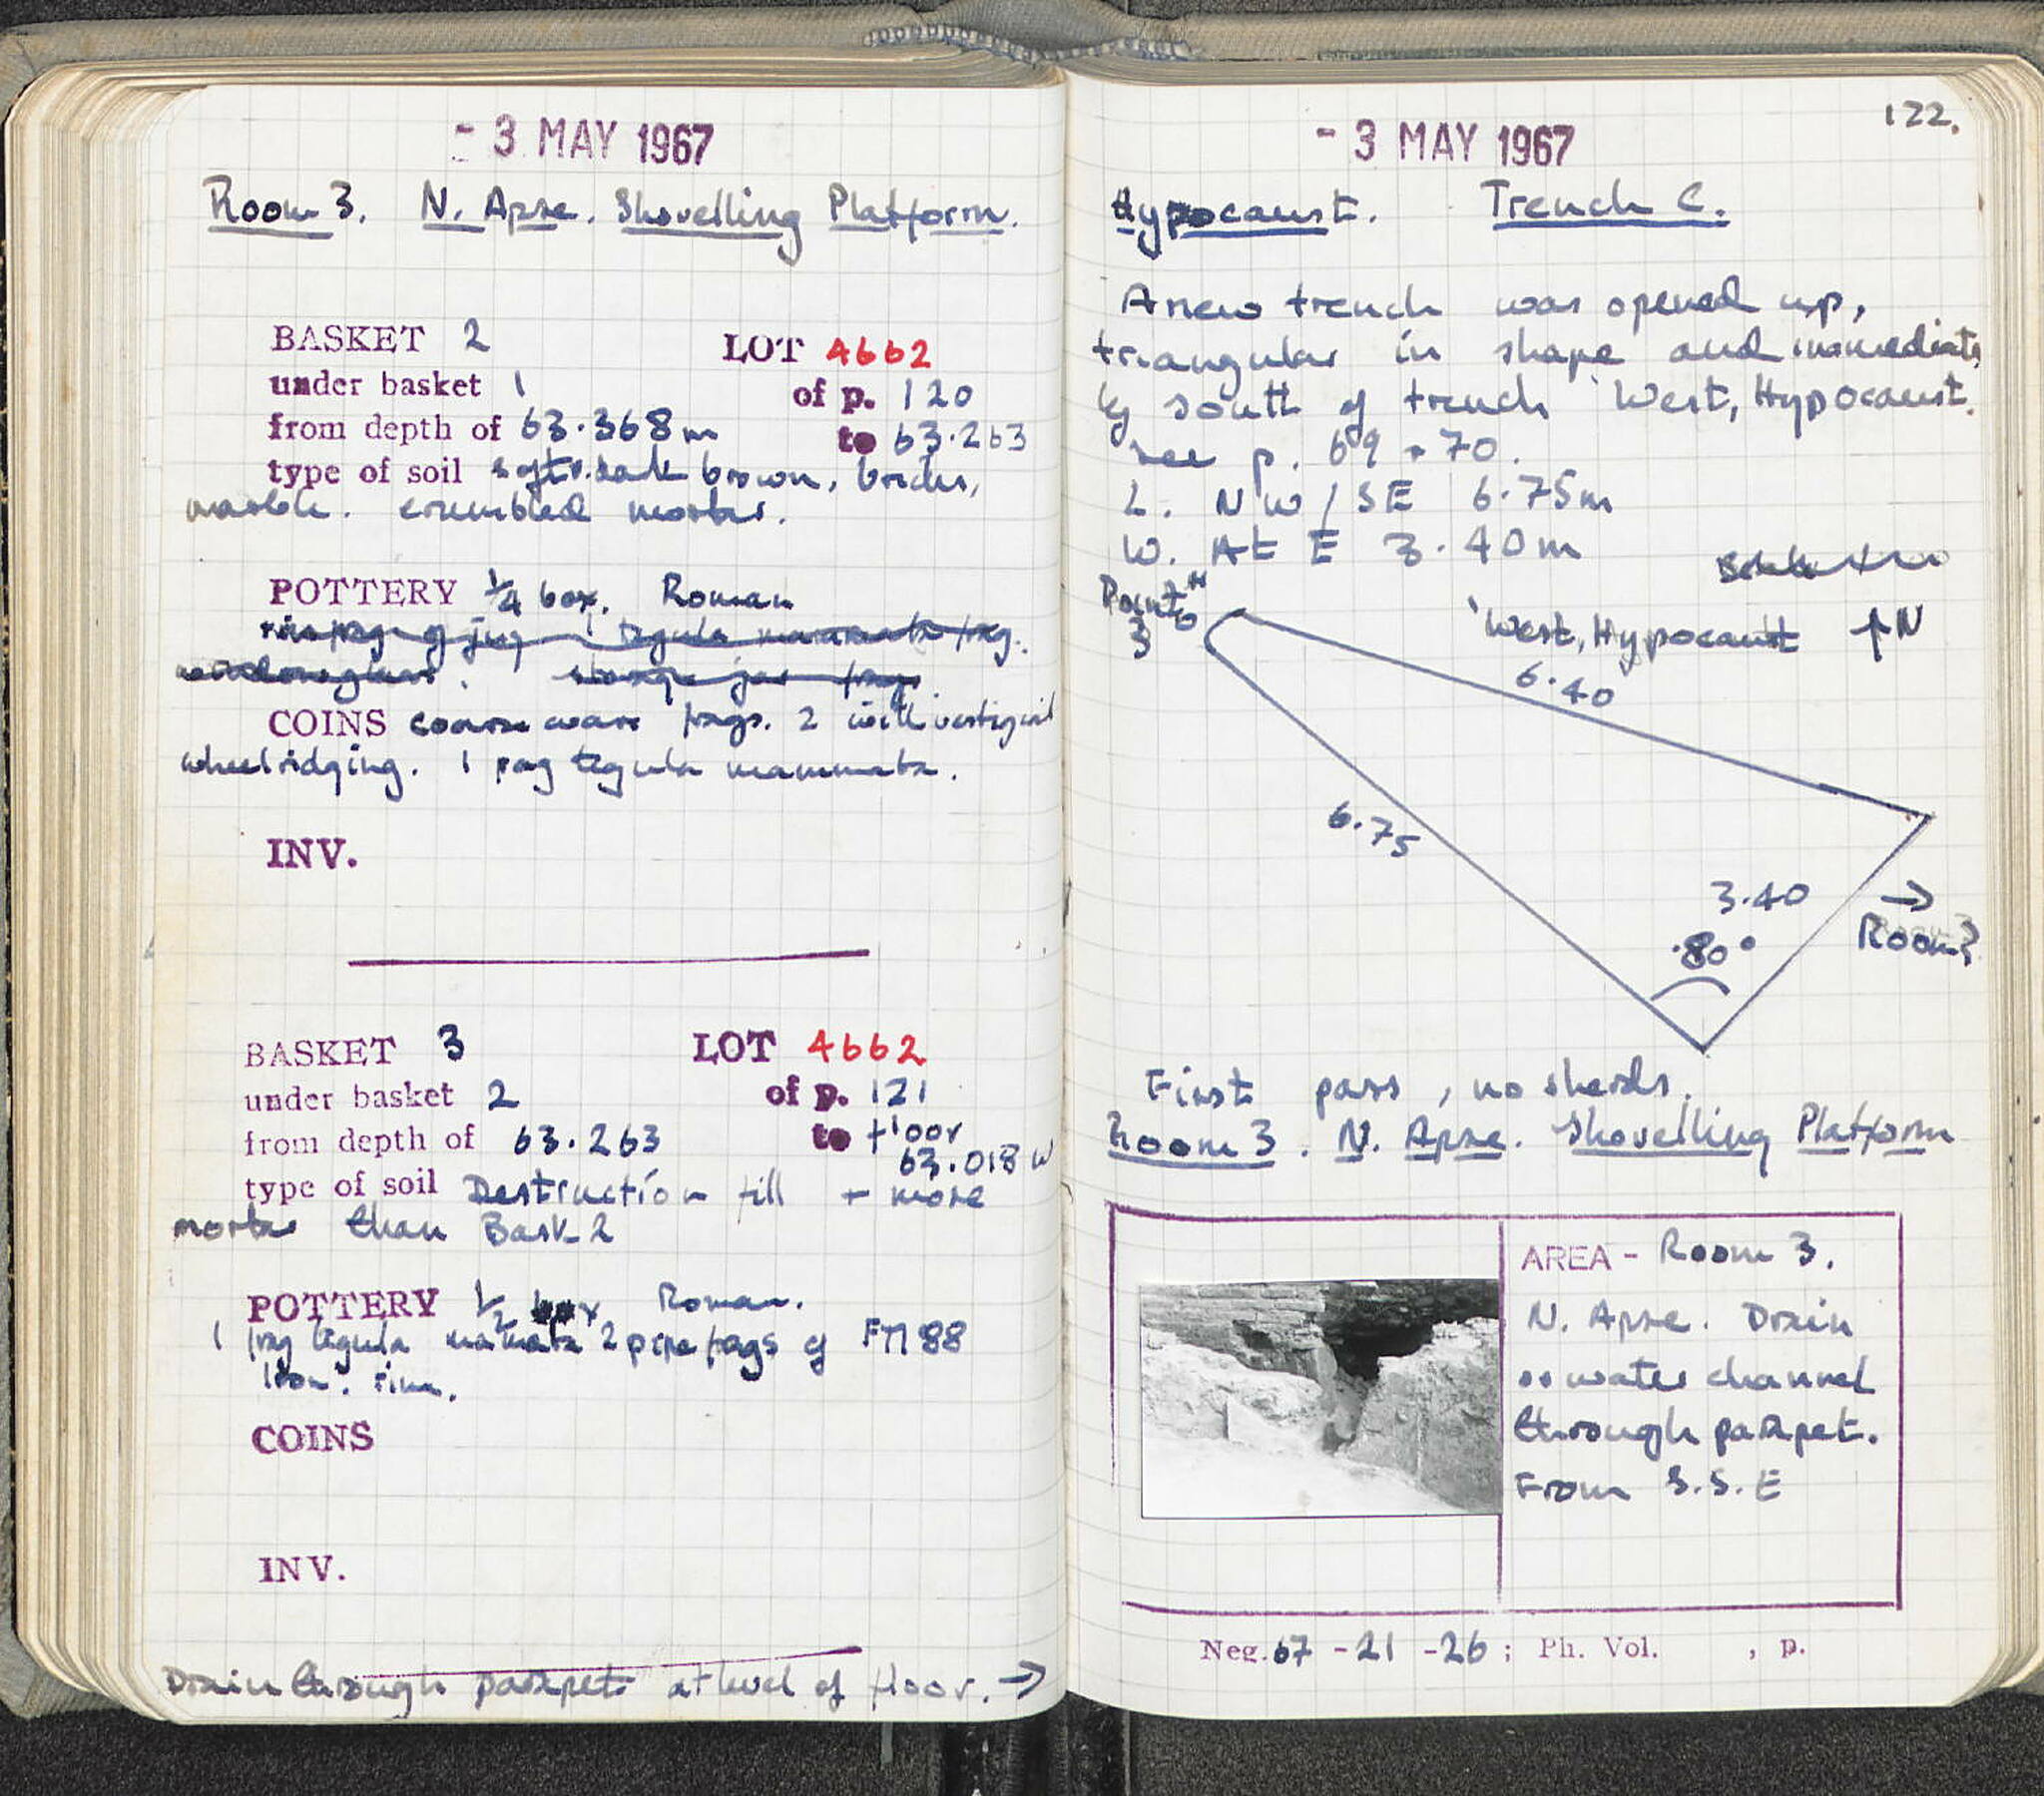 - 3 MAY 1967
Room 3. N. Apse. Shovelling Platform.
BASKET 2 LOT 4662
under basket 1 of p. 120
from depth of 63.368m to 63.263
type of soil soft v. dark brown, bricks,
marble. crumbled mortar.
POTTERY 1/4 box. Roman
frag of jug, 1 tegula mammata frag.
windowglass. storage jar frags.
COINS coarse ware frags. 2 with vestigial
wheelridging. 1 frag tegula mammata.
INV.
BASKET 3 LOT 4662
under basket 2 of p. 121
from depth of 63.263 to floor
63.018
type of soil Destruction fill + more
mortar than Bask 2
POTTERY 1/2 box Roman.
1 frag tegula mamata 2 pipe frags of FM 88
COINS
INV.
Drain through parapet at level of floor. →
- 3 MAY 1967
122.
Hypocaust. Trench C.
A new trench was opened up,
triangular in shape and immediate
ly south of trench 'West, Hypocaust.
see p. 69 + 70.
L. NW/SE 6.75m
W. At E 3.40m
Point
3
'West, Hypocaust ↑N
6.40
6.75
3.40 →
80° Room 3
First pass, no sherds.
Room 3. N. Apse. Shovelling Platform
AREA - Room 3.
N. Apse. Drain
or water channel
through parapet.
From S.S.E
Neg. 67 - 21 - 26 ; Ph. Vol. , p.